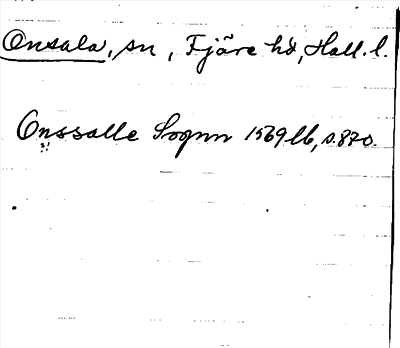 Onsala, sn, Fjäre hd, Hall. l.
Onssalle Sognn 1569 lb, s. 870.